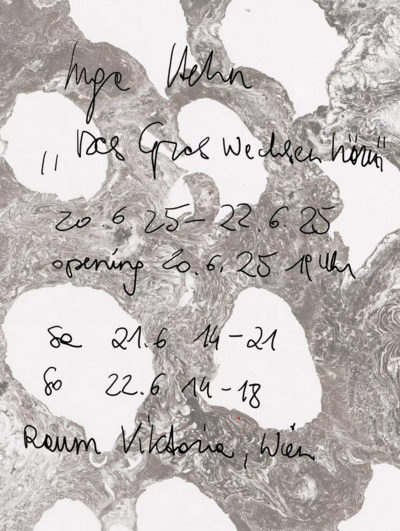 Inge Hehn
„Das Gras wachsen hören"
20.6.25 – 22.6.25
opening 20.6.25 19 Uhr
Sa 21.6 14-21
So 22.6 14-18
Raum Viktoria, Wien